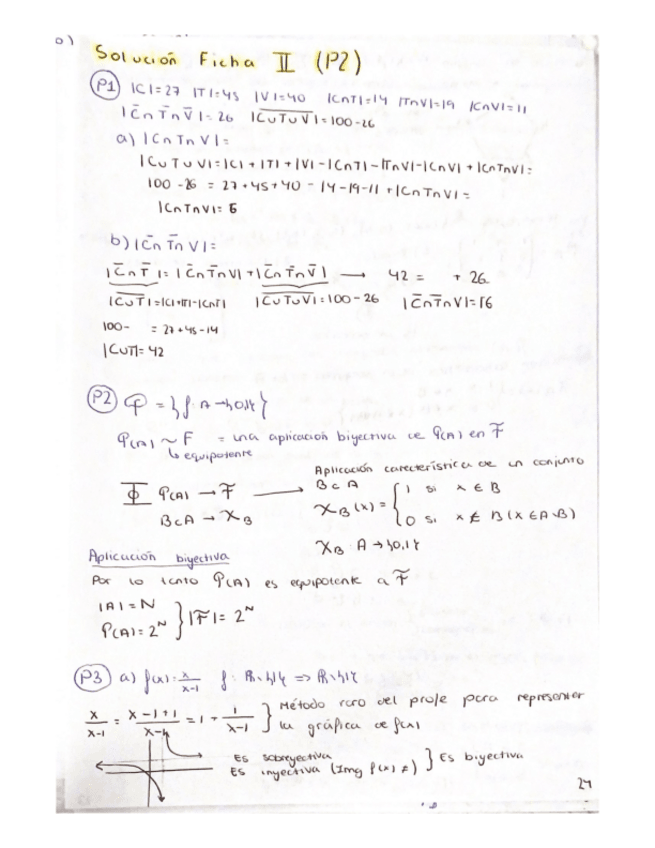 Solución Ficha II (P2)
P1 |C|=27 |T|=45 |V|=40 |C∩T|=14 |T∩V|=19 |C∩V|=11
|C̄∩T̄∩V̄|=26 |\overline{C∪T∪V}|=100-26
a) |C∩T∩V|=
|C∪T∪V|=|C|+|T|+|V|-|C∩T|-|T∩V|-|C∩V|+|C∩T∩V|=
100-26 = 27+45+40-14-19-11+|C∩T∩V|=
|C∩T∩V|= 6
b) |C̄∩T̄∩V|=
|C̄∩T̄|=|C̄∩T̄∩V|+|C̄∩T̄∩V̄| → 42 = + 26
|\overline{C∪T}|=|C|+|T|-|C∩T| |\overline{C∪T∪V}|=100-26 |C̄∩T̄∩V|=16
100- = 27+45-14
|C∪T|= 42
P2 F = {f A→{0,1}}
P(A) ~ F = una aplicación biyectiva de P(A) en F
↳ equipotente
Aplicación característica de un conjunto
Φ P(A) → F → B⊂A
B⊂A → X_B X_B(x) = { 1 si x∈B
0 si x∉B (x∈A\B)
X_B A→{0,1}
Aplicación biyectiva
Por lo tanto P(A) es equipotente a F
|A|=N
P(A)=2^N } |F|=2^N
P3 a) f(x)= x/(x-1) f: R\{1} => R\{1}
x/(x-1) = (x-1+1)/(x-1) = 1 + 1/(x-1) } Método raro del profe para representar
la gráfica de f(x)
Es sobreyectiva
Es inyectiva (Img f(x) ≠) } Es biyectiva